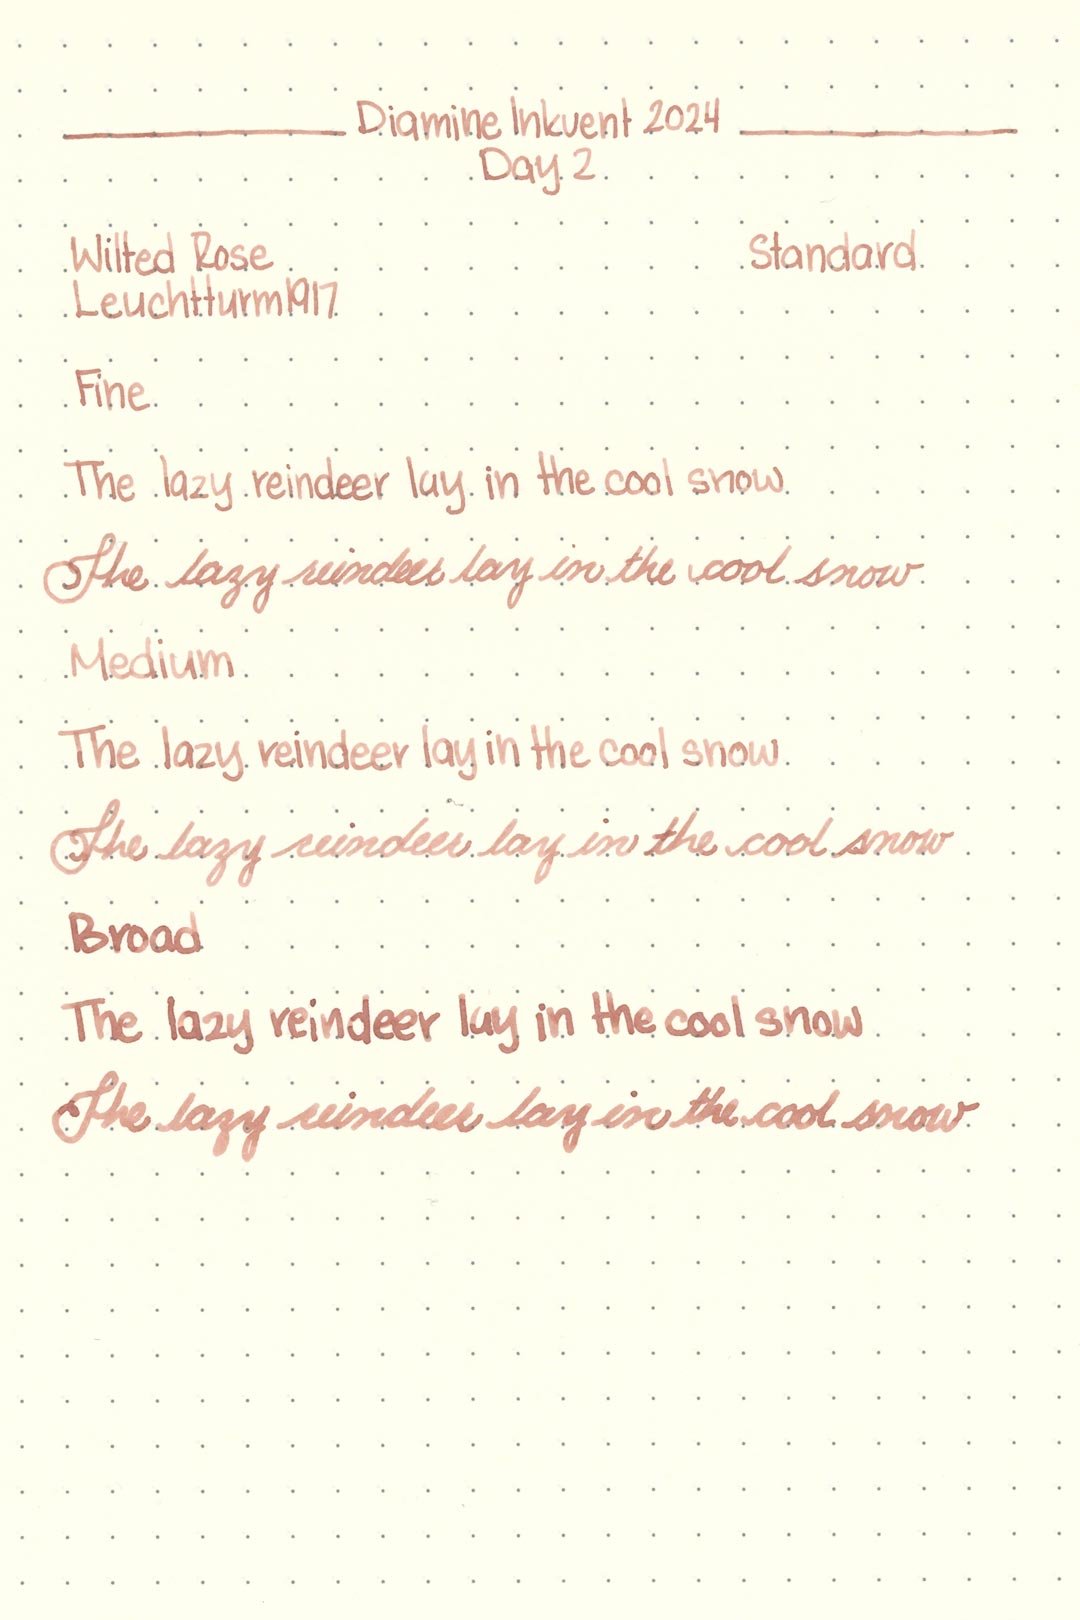 Diamine Inkvent 2024
Day 2
Wilted Rose Standard
Leuchtturm1917
Fine
The lazy reindeer lay in the cool snow
The lazy reindeer lay in the cool snow
Medium
The lazy reindeer lay in the cool snow
The lazy reindeer lay in the cool snow
Broad
The lazy reindeer lay in the cool snow
The lazy reindeer lay in the cool snow